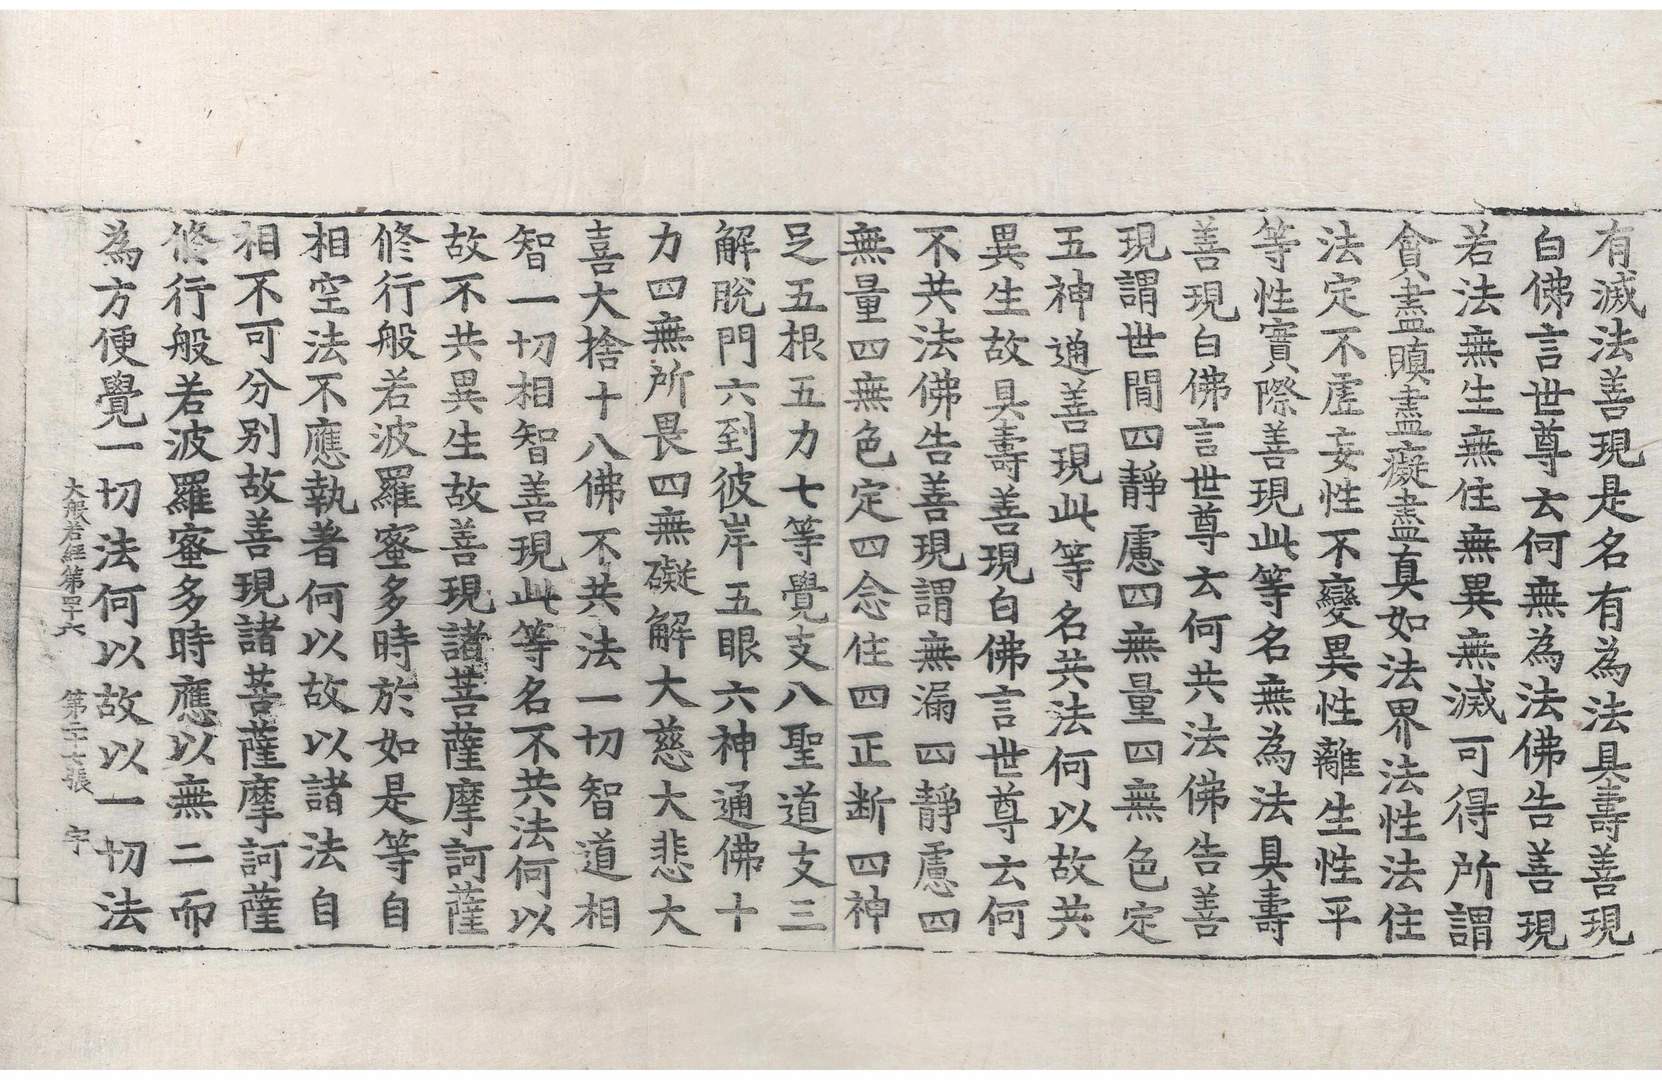 有滅法善現是名有為法具壽善現
白佛言世尊云何無為法佛告善現
若法無生無住無異無滅可得所謂
貪盡瞋盡癡盡真如法界法性法住
法定不虛妄性不變異性離生性平
等性實際善現此等名無為法具壽
善現白佛言世尊云何共法佛告善
現謂世間四靜慮四無量四無色定
五神通善現此等名共法何以故共
異生故具壽善現白佛言世尊云何
不共法佛告善現謂無漏四靜慮四
無量四無色定四念住四正斷四神
足五根五力七等覺支八聖道支三
解脫門六到彼岸五眼六神通佛十
力四無所畏四無礙解大慈大悲大
喜大捨十八佛不共法一切智道相
智一切相智善現此等名不共法何以
故不共異生故善現諸菩薩摩訶薩
修行般若波羅蜜多時於如是等自
相空法不應執著何以故以諸法自
相不可分別故善現諸菩薩摩訶薩
修行般若波羅蜜多時應以無二而
為方便覺一切法何以故以一切法
大般若經第四十六 第二十七張 宇